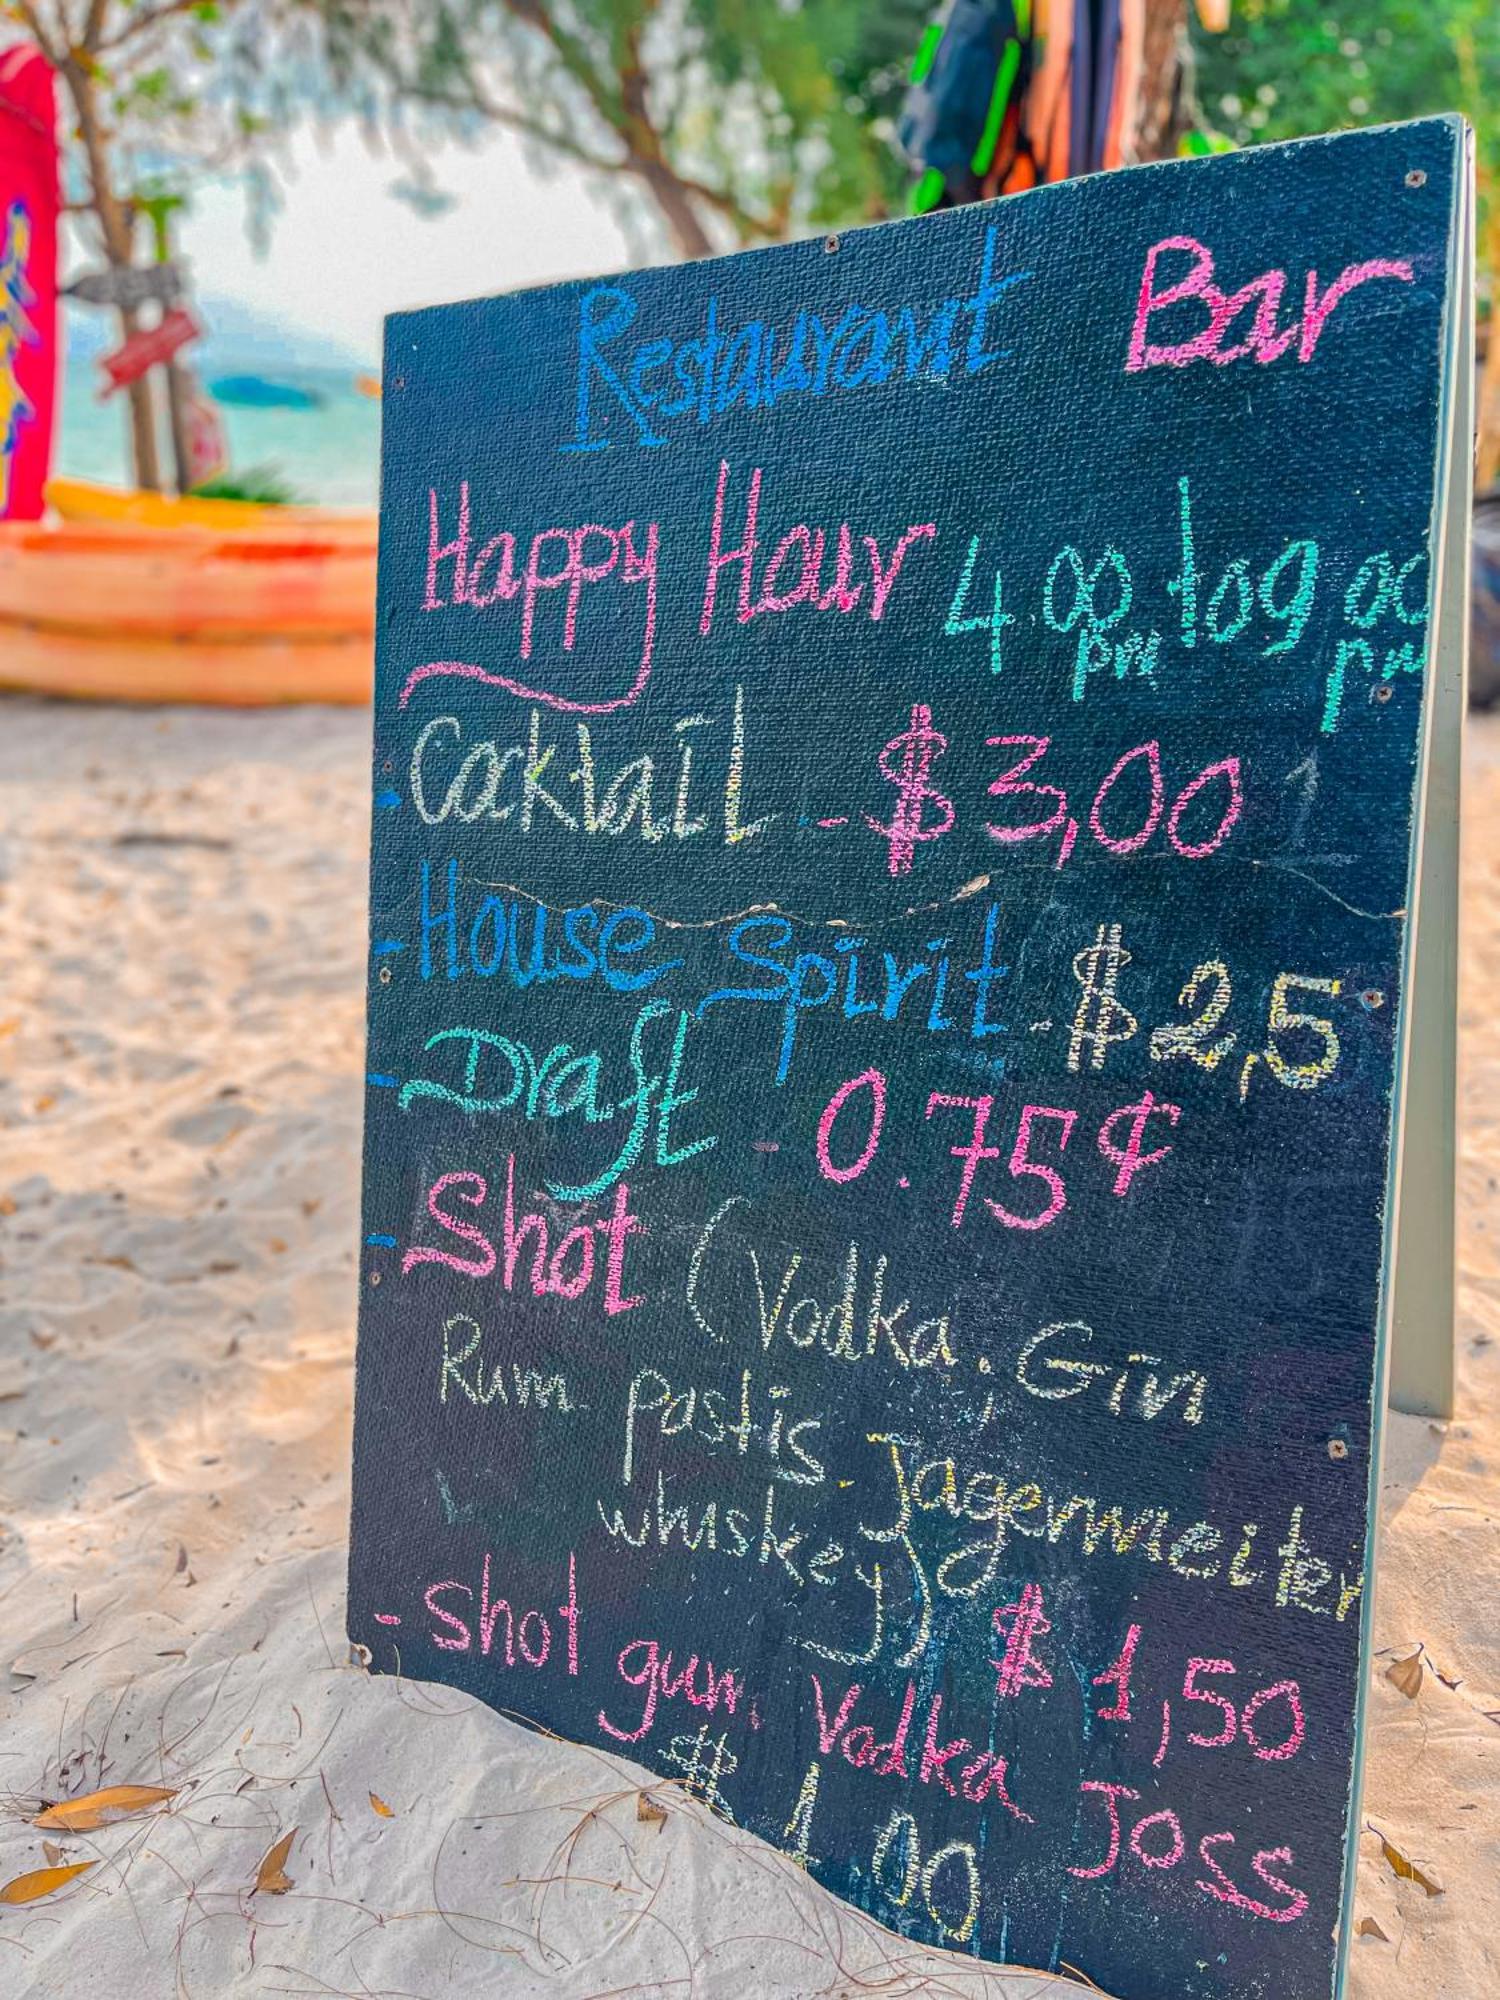 Restaurant Bar
Happy Hour 4.00 pm to 9 00 pm
- Cocktail - $3,00
- House Spirit - $2,5
- Draft - 0.75¢
- Shot (Vodka, Gin
Rum pastis Jagermeiter
whiskey) $1,50
- shot gum, Vodka Joss
$1,00